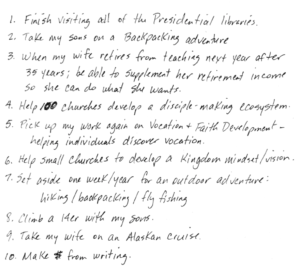 1. Finish visiting all of the Presidential libraries.
2. Take my sons on a Backpacking adventure
3. When my wife retires from teaching next year after
35 years; be able to supplement her retirement income
so she can do what she wants.
4. Help 100 churches develop a disciple-making ecosystem.
5. Pick up my work again on Vocation & Faith Development -
helping individuals discover vocation.
6. Help small churches to develop a Kingdom mindset/vision.
7. Set aside one week/year for an outdoor adventure:
hiking/backpacking/fly fishing
8. Climb a 14er with my sons.
9. Take my wife on an Alaskan cruise.
10. Make $ from writing.